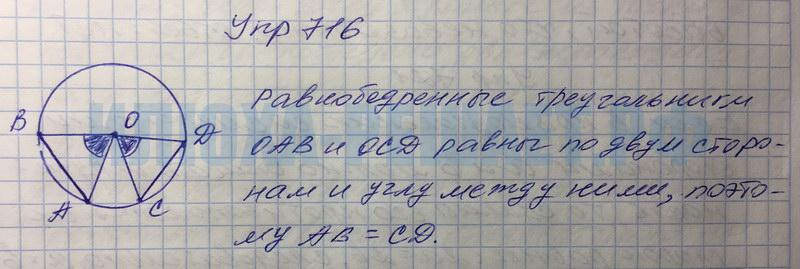 Упр 716
B
O
D
A
C
Равнобедренные треугольники
OAB и OCD равны по двум сторо-
нам и углу между ними, поэто-
му AB = CD.